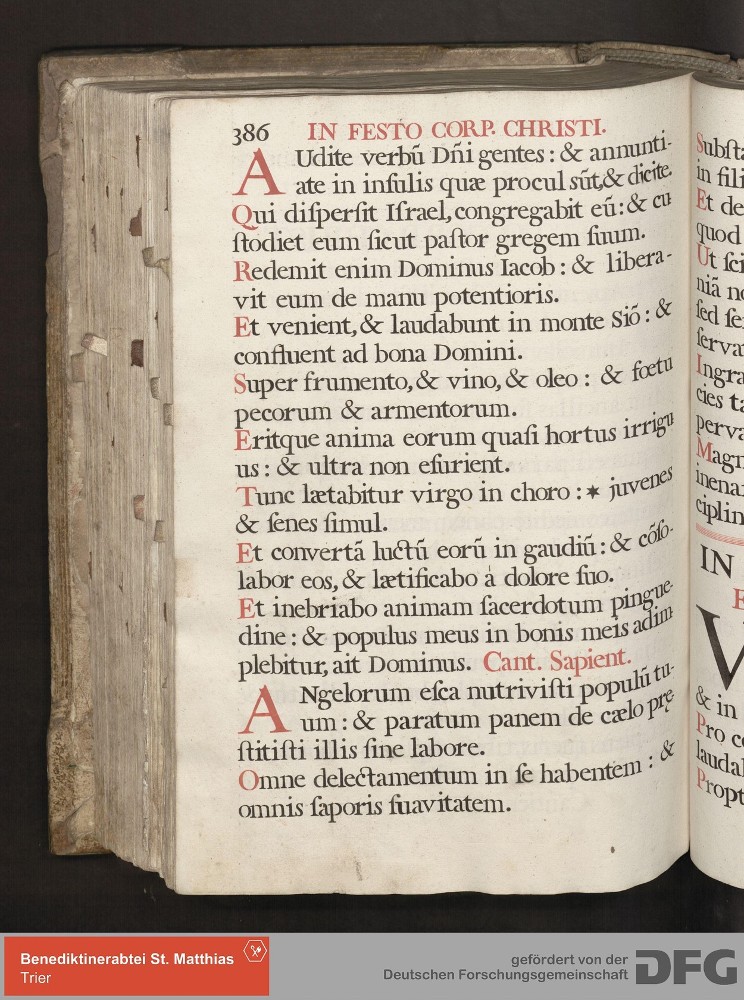 386 IN FESTO CORP. CHRISTI.
AUdite verbū Dn̄i gentes : & annunti-
ate in inſulis quæ procul sūt,& dicite.
Qui diſperſit Iſrael, congregabit eū : & cu
ſtodiet eum ſicut paſtor gregem ſuum.
Redemit enim Dominus Iacob : & libera-
vit eum de manu potentioris.
Et venient, & laudabunt in monte Siō : &
confluent ad bona Domini.
Super frumento, & vino, & oleo : & fœtu
pecorum & armentorum.
Eritque anima eorum quaſi hortus irrigu
us : & ultra non eſurient.
Tunc lætabitur virgo in choro : ✶ juvenes
& ſenes ſimul.
Et convertā luctū eorū in gaudiū : & cōſo-
labor eos, & lætificabo à dolore ſuo.
Et inebriabo animam ſacerdotum pingue-
dine : & populus meus in bonis meis adim
plebitur, ait Dominus. Cant. Sapient.
ANgelorum eſca nutriviſti populū tu-
um : & paratum panem de cælo prę
ſtitiſti illis ſine labore.
Omne delectamentum in ſe habentem : &
omnis ſaporis ſuavitatem.
Subſta
in fili
Et de
quod
Ut ſci
niā no
ſed ſe
ſerva
Ingra
cies ta
perva
Magn
inena
ciplin
IN
V
& in
Pro c
laudal
Propt
Benediktinerabtei St. Matthias
Trier
gefördert von der
Deutschen Forschungsgemeinschaft DFG